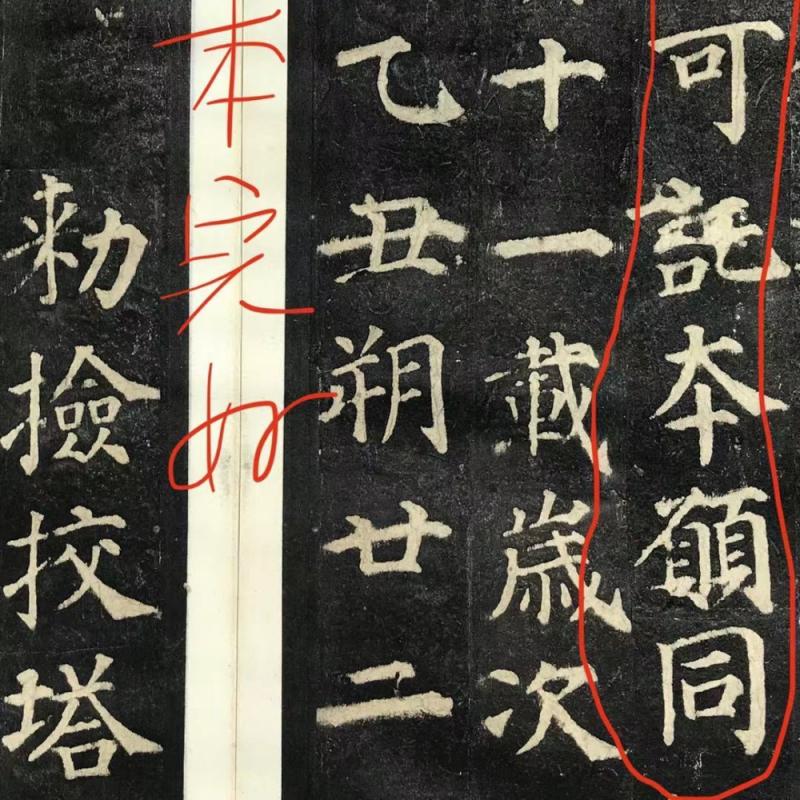 可託夲願同
十一載歲次
乙丑朔廿二
本完好
勑撿挍塔